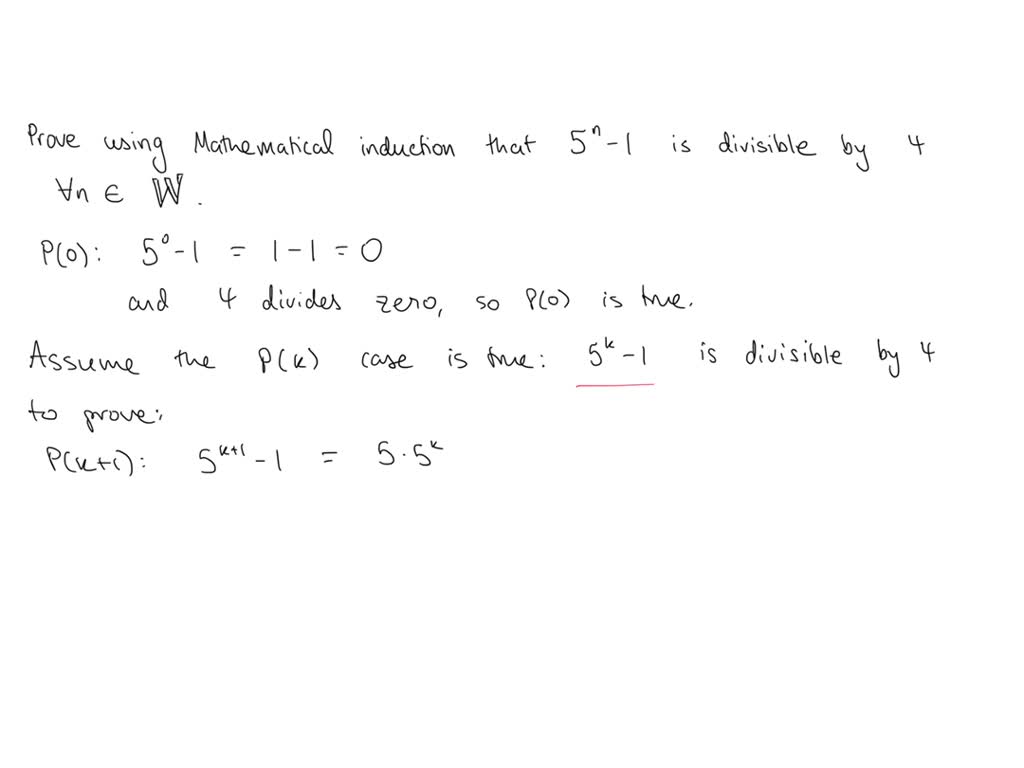 Prove using Mathematical induction that 5ⁿ - 1 is divisible by 4
∀n ∈ 𝕎.
P(0): 5⁰ - 1 = 1 - 1 = 0
and 4 divides zero, so P(0) is true.
Assume the P(k) case is true: 5ᵏ - 1 is divisible by 4
to prove:
P(k+1): 5ᵏ⁺¹ - 1 = 5 · 5ᵏ